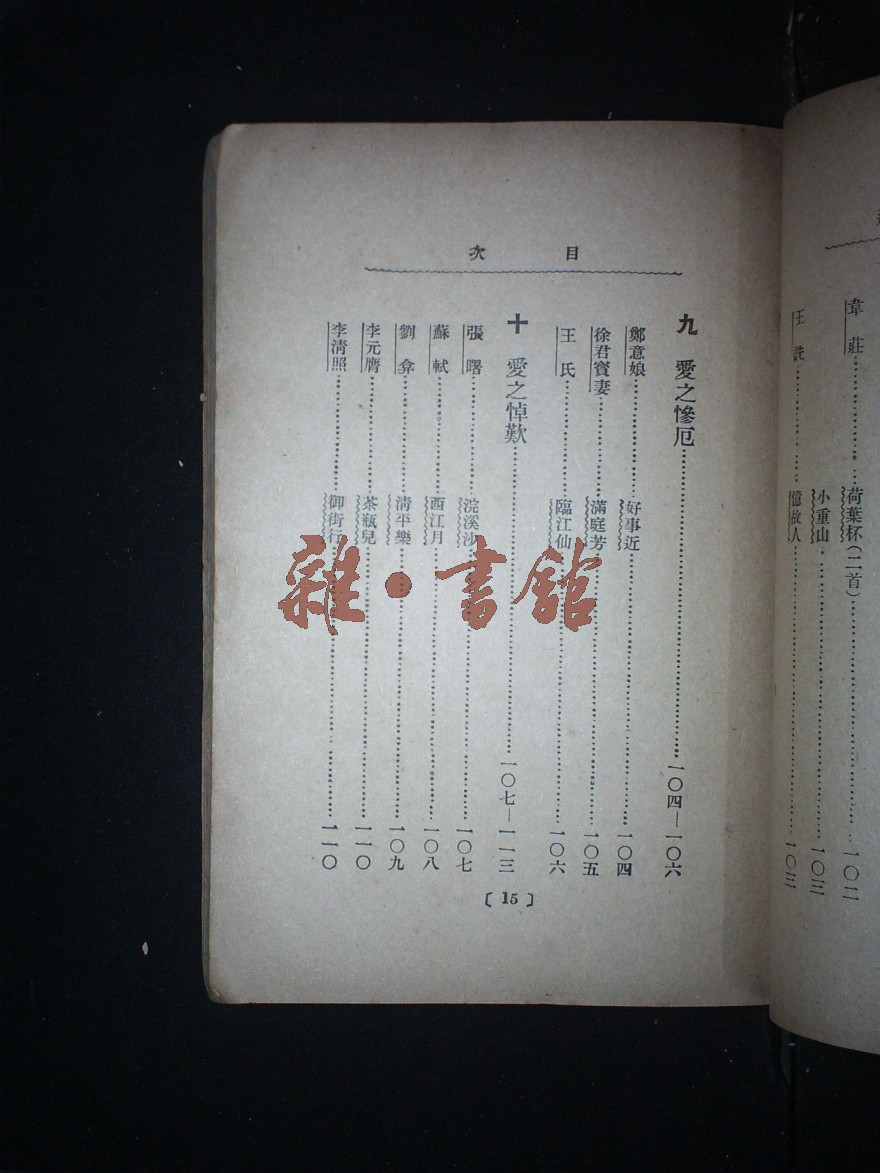 韋莊……荷葉杯(二首)……一〇二
小重山……一〇三
王詵……憶故人……一〇三
目次
九 愛之慘厄……一〇四—一〇六
鄭意娘……好事近……一〇四
徐君寶妻……滿庭芳……一〇五
王氏……臨江仙……一〇六
十 愛之悼歎……一〇七—一一三
張曙……浣溪沙……一〇七
蘇軾……西江月……一〇八
劉弇……清平樂……一〇九
李元膺……茶瓶兒……一一〇
李清照……御街行……一一〇
〔15〕
雜·書館